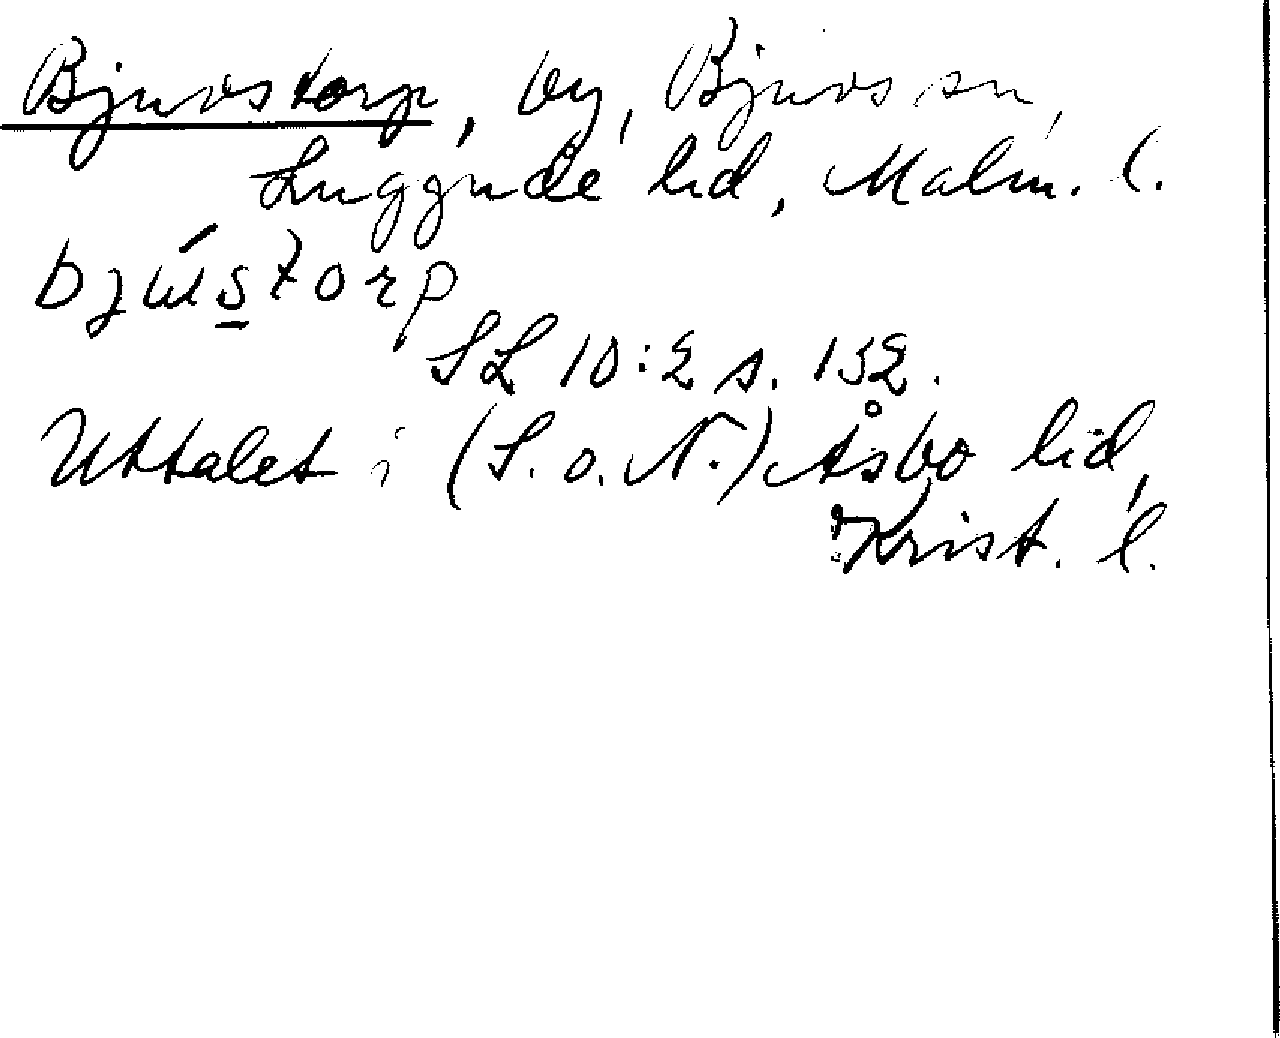 Bjuvstorp, by, Bjuvs sn,
Luggude hd, Malm. l.
bjus̲torp
SL 10:2 s. 152.
Uttalet i (S. o. N.) Åsbo hd,
Krist. l.